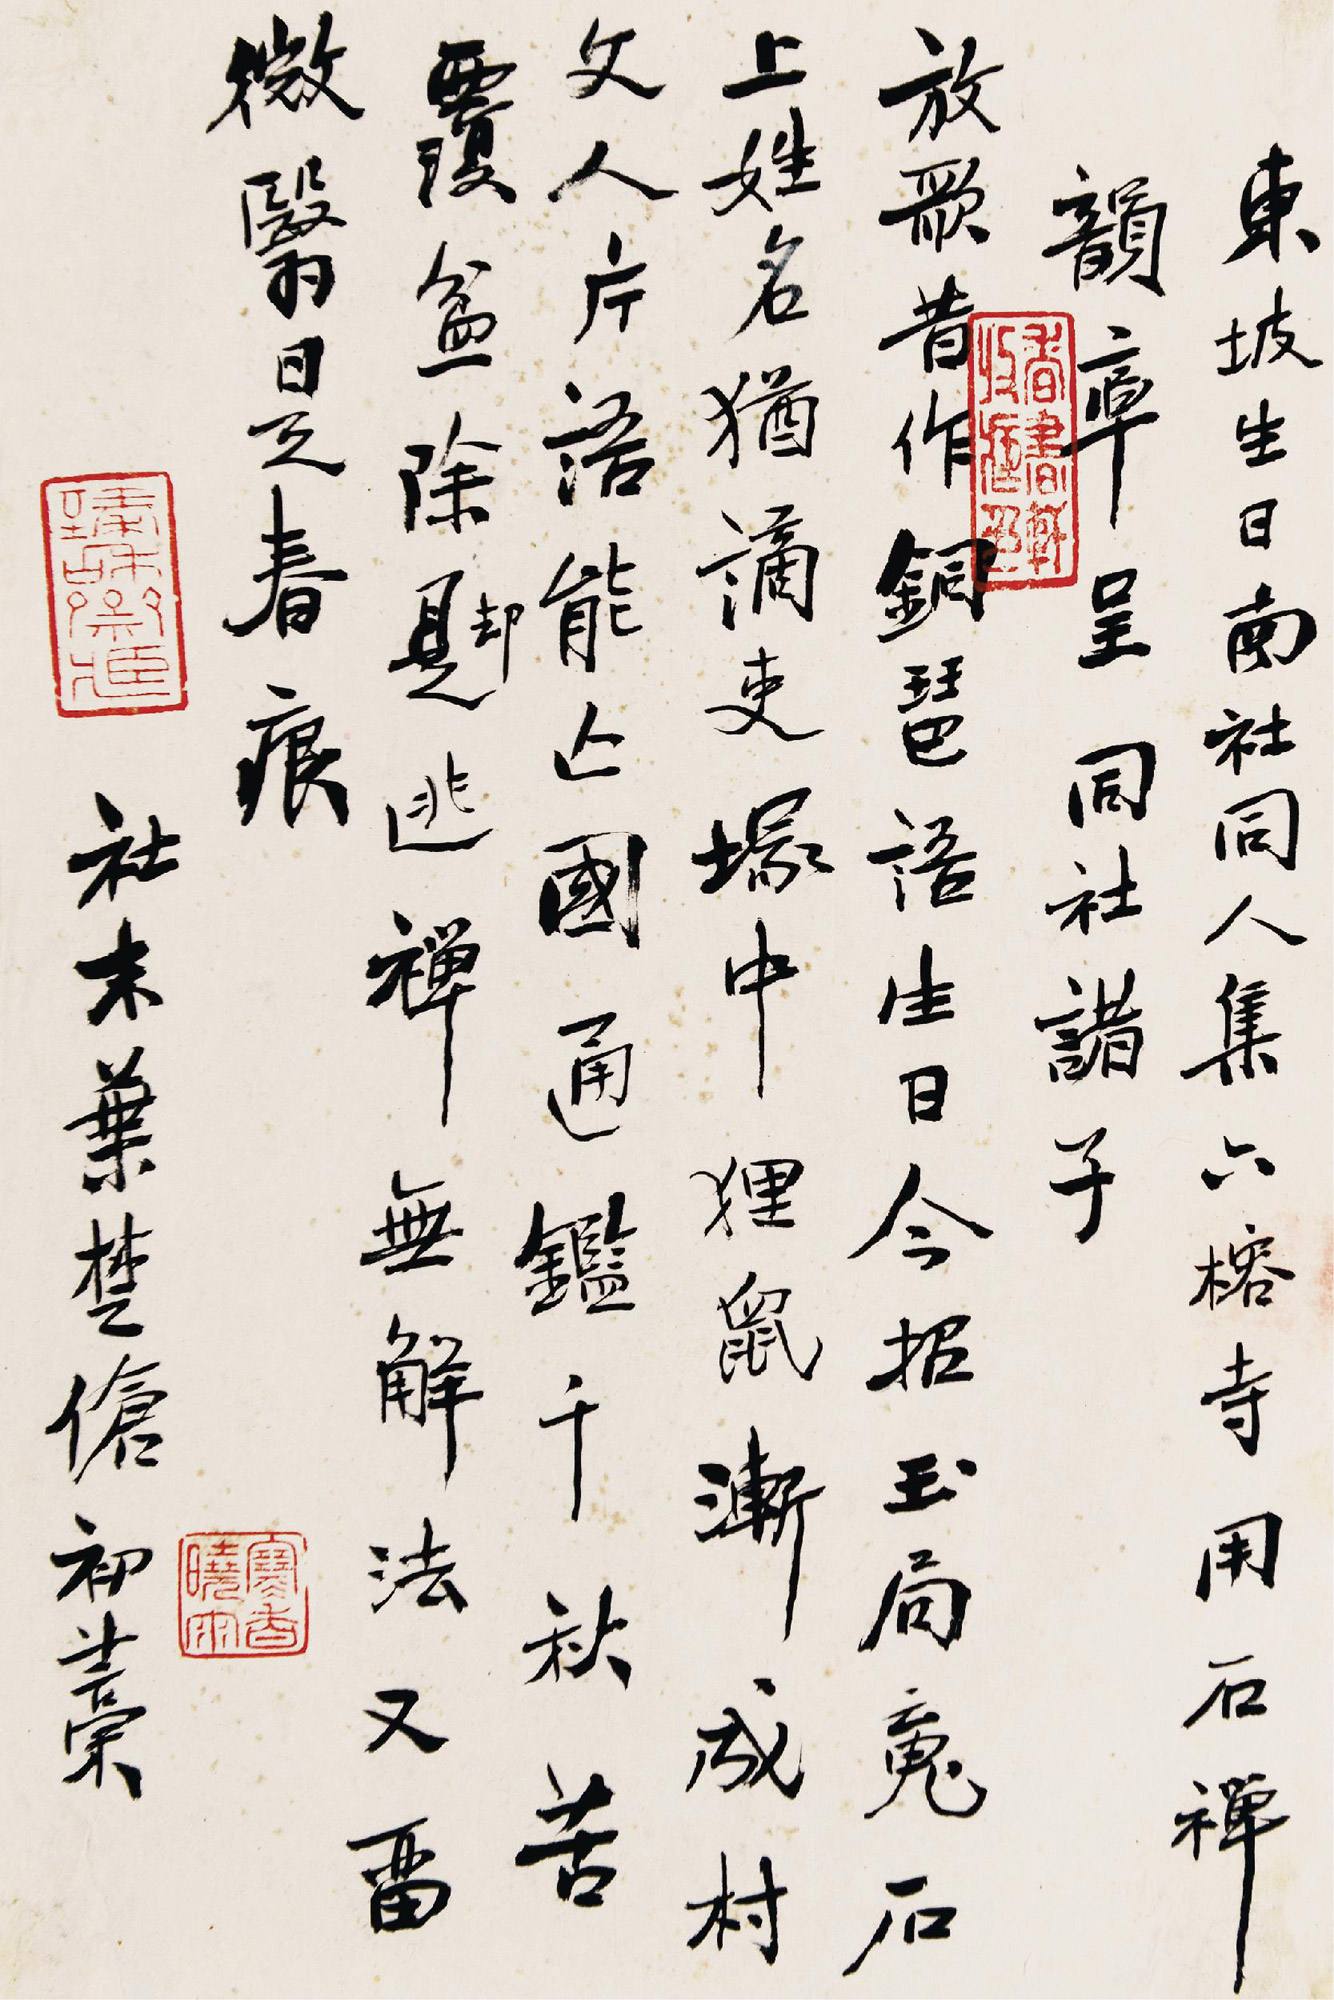 東坡生日南社同人集六榕寺用石禪
韻率呈同社諸子
放歌昔作銅琶語生日今招玉局魂石
上姓名猶謫吏塚中狸鼠漸成村
文人片語能亡國通鑑千秋苦
覆盆除是却逃禪無解法又畱
微翳是春痕
社末葉楚傖初藁
寒香曉雨